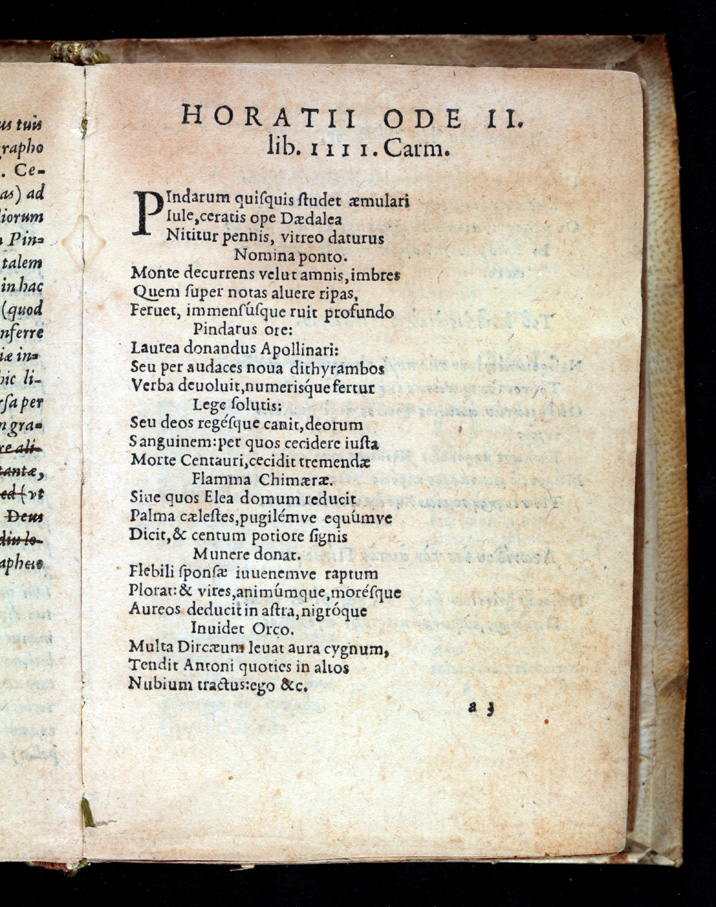 us tuis
rapho
. Ce-
as) ad
liorum
Pin-
talem
in hac
(quod
nferre
iæ in-
hic li-
rsa per
n gra-
re ali-
tantæ,
ed (vt
Deus
diu lo-
aphere
HORATII ODE II.
lib. IIII. Carm.
PIndarum quiſquis ſtudet æmulari
Iule, ceratis ope Dædalea
Nititur pennis, vitreo daturus
Nomina ponto.
Monte decurrens velut amnis, imbres
Quem ſuper notas aluere ripas,
Feruet, immenſúſque ruit profundo
Pindarus ore:
Laurea donandus Apollinari:
Seu per audaces noua dithyrambos
Verba deuoluit, numeriſque fertur
Lege ſolutis:
Seu deos regéſque canit, deorum
Sanguinem: per quos cecidere iuſta
Morte Centauri, cecidit tremendæ
Flamma Chimæræ.
Siue quos Elea domum reducit
Palma cæleſtes, pugilémve equúmve
Dicit, & centum potiore ſignis
Munere donat.
Flebili ſponſæ iuuenemve raptum
Plorat: & vires, animúmque, moréſque
Aureos deducit in aſtra, nigróque
Inuidet Orco.
Multa Dircæum leuat aura cygnum,
Tendit Antoni quoties in altos
Nubium tractus: ego &c.
a 3